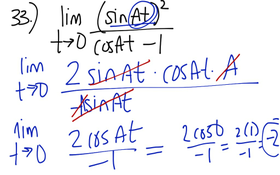 33.) lim t→0 (sin At)² / cos At − 1
lim t→0 2 sin At · cos At · A / −A sin At
lim t→0 2 cos At / −1 = 2 cos 0 / −1 = 2(1) / −1 = −2